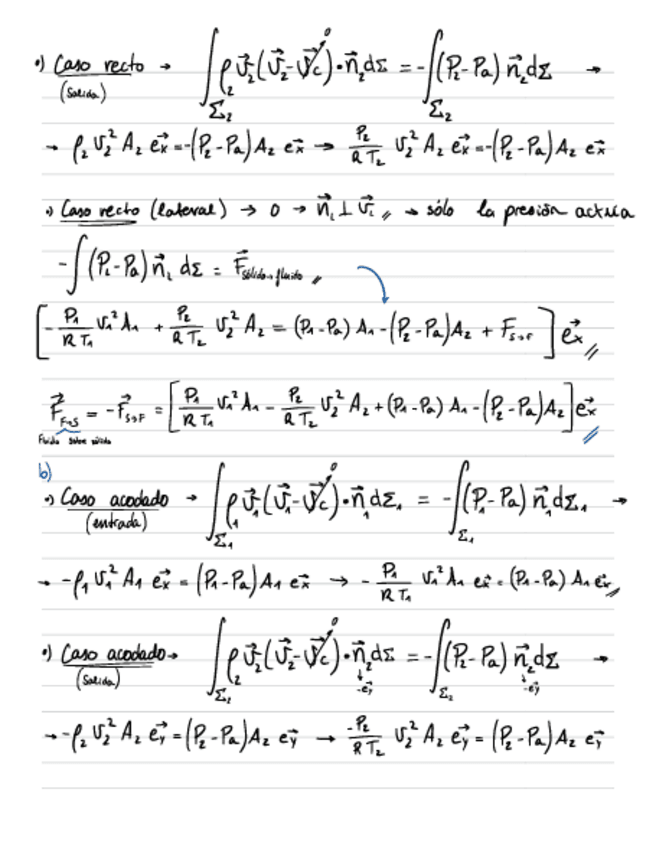 •) Caso recto → ∫_{Σ₂} ρ₂ v⃗₂(v⃗₂ - v⃗c)^{→0}·n⃗₂dΣ = -∫_{Σ₂}(P₂-Pa) n⃗₂dΣ →
(salida)
→ ρ₂ v₂² A₂ e⃗x = -(P₂-Pa)A₂ e⃗x → P₂/(R T₂) v₂² A₂ e⃗x = -(P₂-Pa)A₂ e⃗x
•) Caso recto (lateral) → 0 → n⃗ₗ ⊥ v⃗ₗ // → sólo la presión actúa
-∫(Pₗ-Pa) n⃗ₗ dΣ = F⃗ sólido→fluido //
[-P₁/(R T₁) v₁² A₁ + P₂/(R T₂) v₂² A₂ = (P₁-Pa) A₁ -(P₂-Pa)A₂ + F_{S→F}] e⃗x //
F⃗_{F→S} = -F⃗_{S→F} = [P₁/(R T₁) v₁² A₁ - P₂/(R T₂) v₂² A₂ + (P₁-Pa) A₁ - (P₂-Pa)A₂] e⃗x //
Fluido sobre sólido
b)
•) Caso acodado → ∫_{Σ₁} ρ₁ v⃗₁(v⃗₁ - v⃗c)^{→0}·n⃗₁dΣ₁ = -∫_{Σ₁}(P₁-Pa) n⃗₁dΣ₁ →
(entrada)
→ -ρ₁ v₁² A₁ e⃗x = (P₁-Pa)A₁ e⃗x → - P₁/(R T₁) v₁² A₁ e⃗x = (P₁-Pa) A₁ e⃗x //
•) Caso acodado → ∫_{Σ₂} ρ₂ v⃗₂(v⃗₂ - v⃗c)^{→0}·n⃗₂dΣ = -∫_{Σ₂}(P₂-Pa) n⃗₂dΣ →
(salida) ↓ -e⃗y ↓ -e⃗y
→ -ρ₂ v₂² A₂ e⃗y = (P₂-Pa)A₂ e⃗y → -P₂/(R T₂) v₂² A₂ e⃗y = (P₂-Pa)A₂ e⃗y